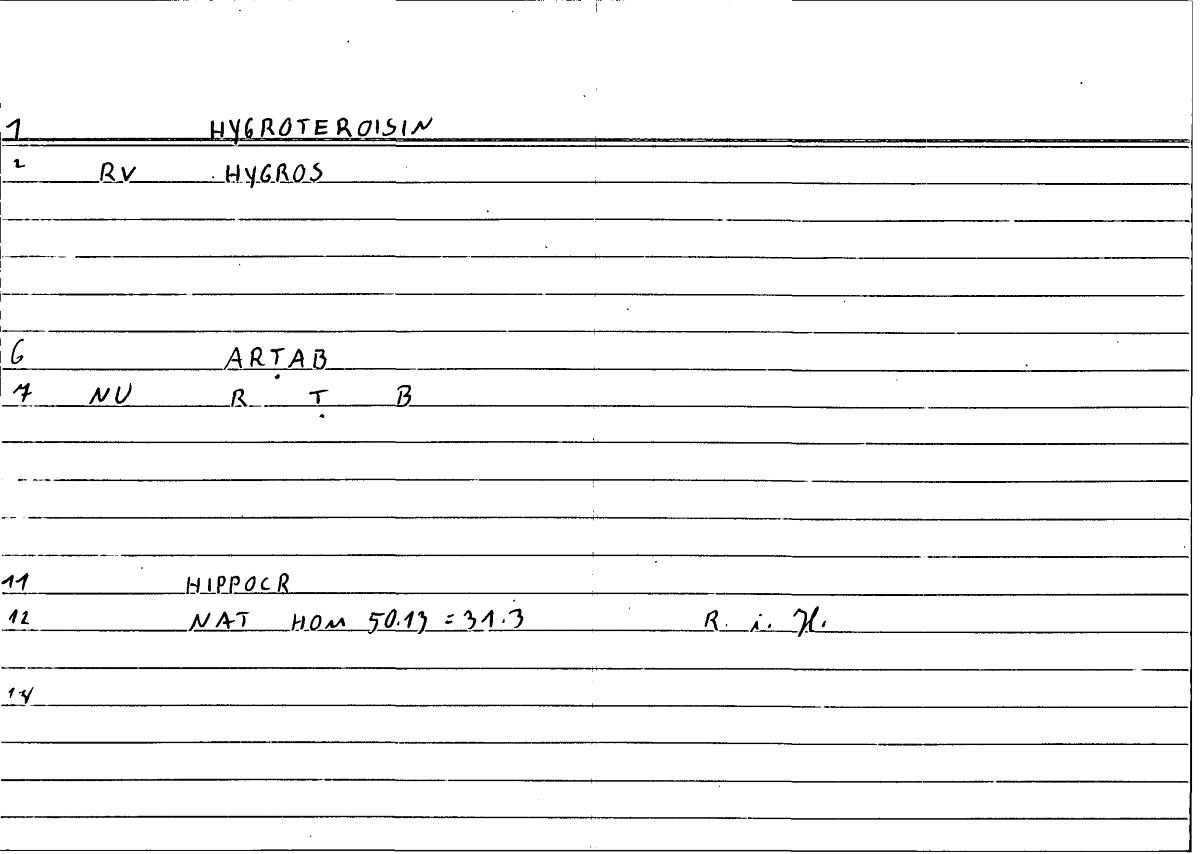 1 HYGROTEROISIN
2 RV HYGROS
6 ARṬAB
7 NU R Ṭ B
11 HIPPOCR
12 NAT HOM 50.13 = 31.3 R. i. H.
14